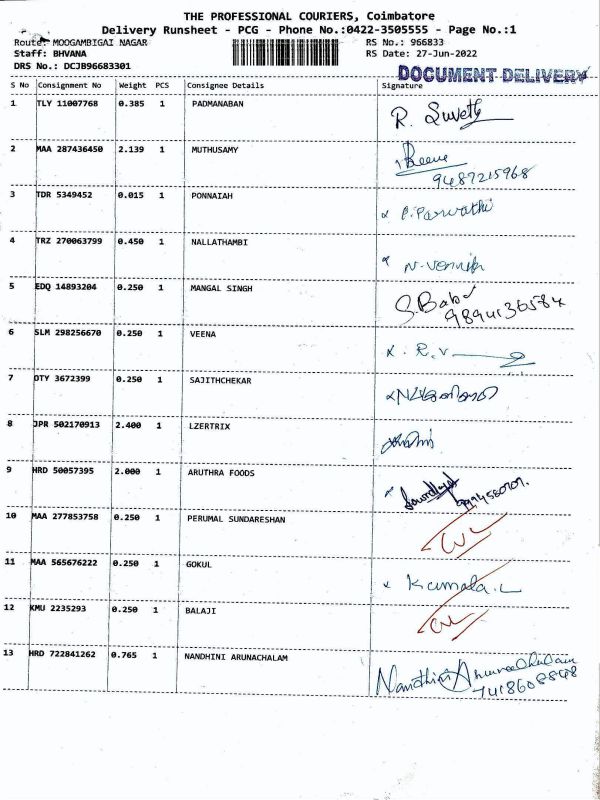 THE PROFESSIONAL COURIERS, Coimbatore
Delivery Runsheet - PCG - Phone No.:0422-3505555 - Page No.:1
Route: MOOGAMBIGAI NAGAR RS No.: 966833
Staff: BHVANA RS Date: 27-Jun-2022
DRS No.: DCJB96683301
DOCUMENT DELIVERY
S No Consignment No Weight PCS Consignee Details Signature
1 TLY 11007768 0.385 1 PADMANABAN R. Suveth
2 MAA 287436450 2.139 1 MUTHUSAMY
9487215968
3 TDR 5349452 0.015 1 PONNAIAH P. Parvathi
4 TRZ 270063799 0.450 1 NALLATHAMBI
5 EDQ 14893204 0.250 1 MANGAL SINGH S. Babu
9894136584
6 SLM 298256670 0.250 1 VEENA R.V
7 OTY 3672399 0.250 1 SAJITHCHEKAR
8 JPR 502170913 2.400 1 LZERTRIX
9 HRD 50057395 2.000 1 ARUTHRA FOODS
10 MAA 277853758 0.250 1 PERUMAL SUNDARESHAN
11 MAA 565676222 0.250 1 GOKUL Kamala.L
12 KMU 2235293 0.250 1 BALAJI
13 HRD 722841262 0.765 1 NANDHINI ARUNACHALAM Nandhini Arunachalam